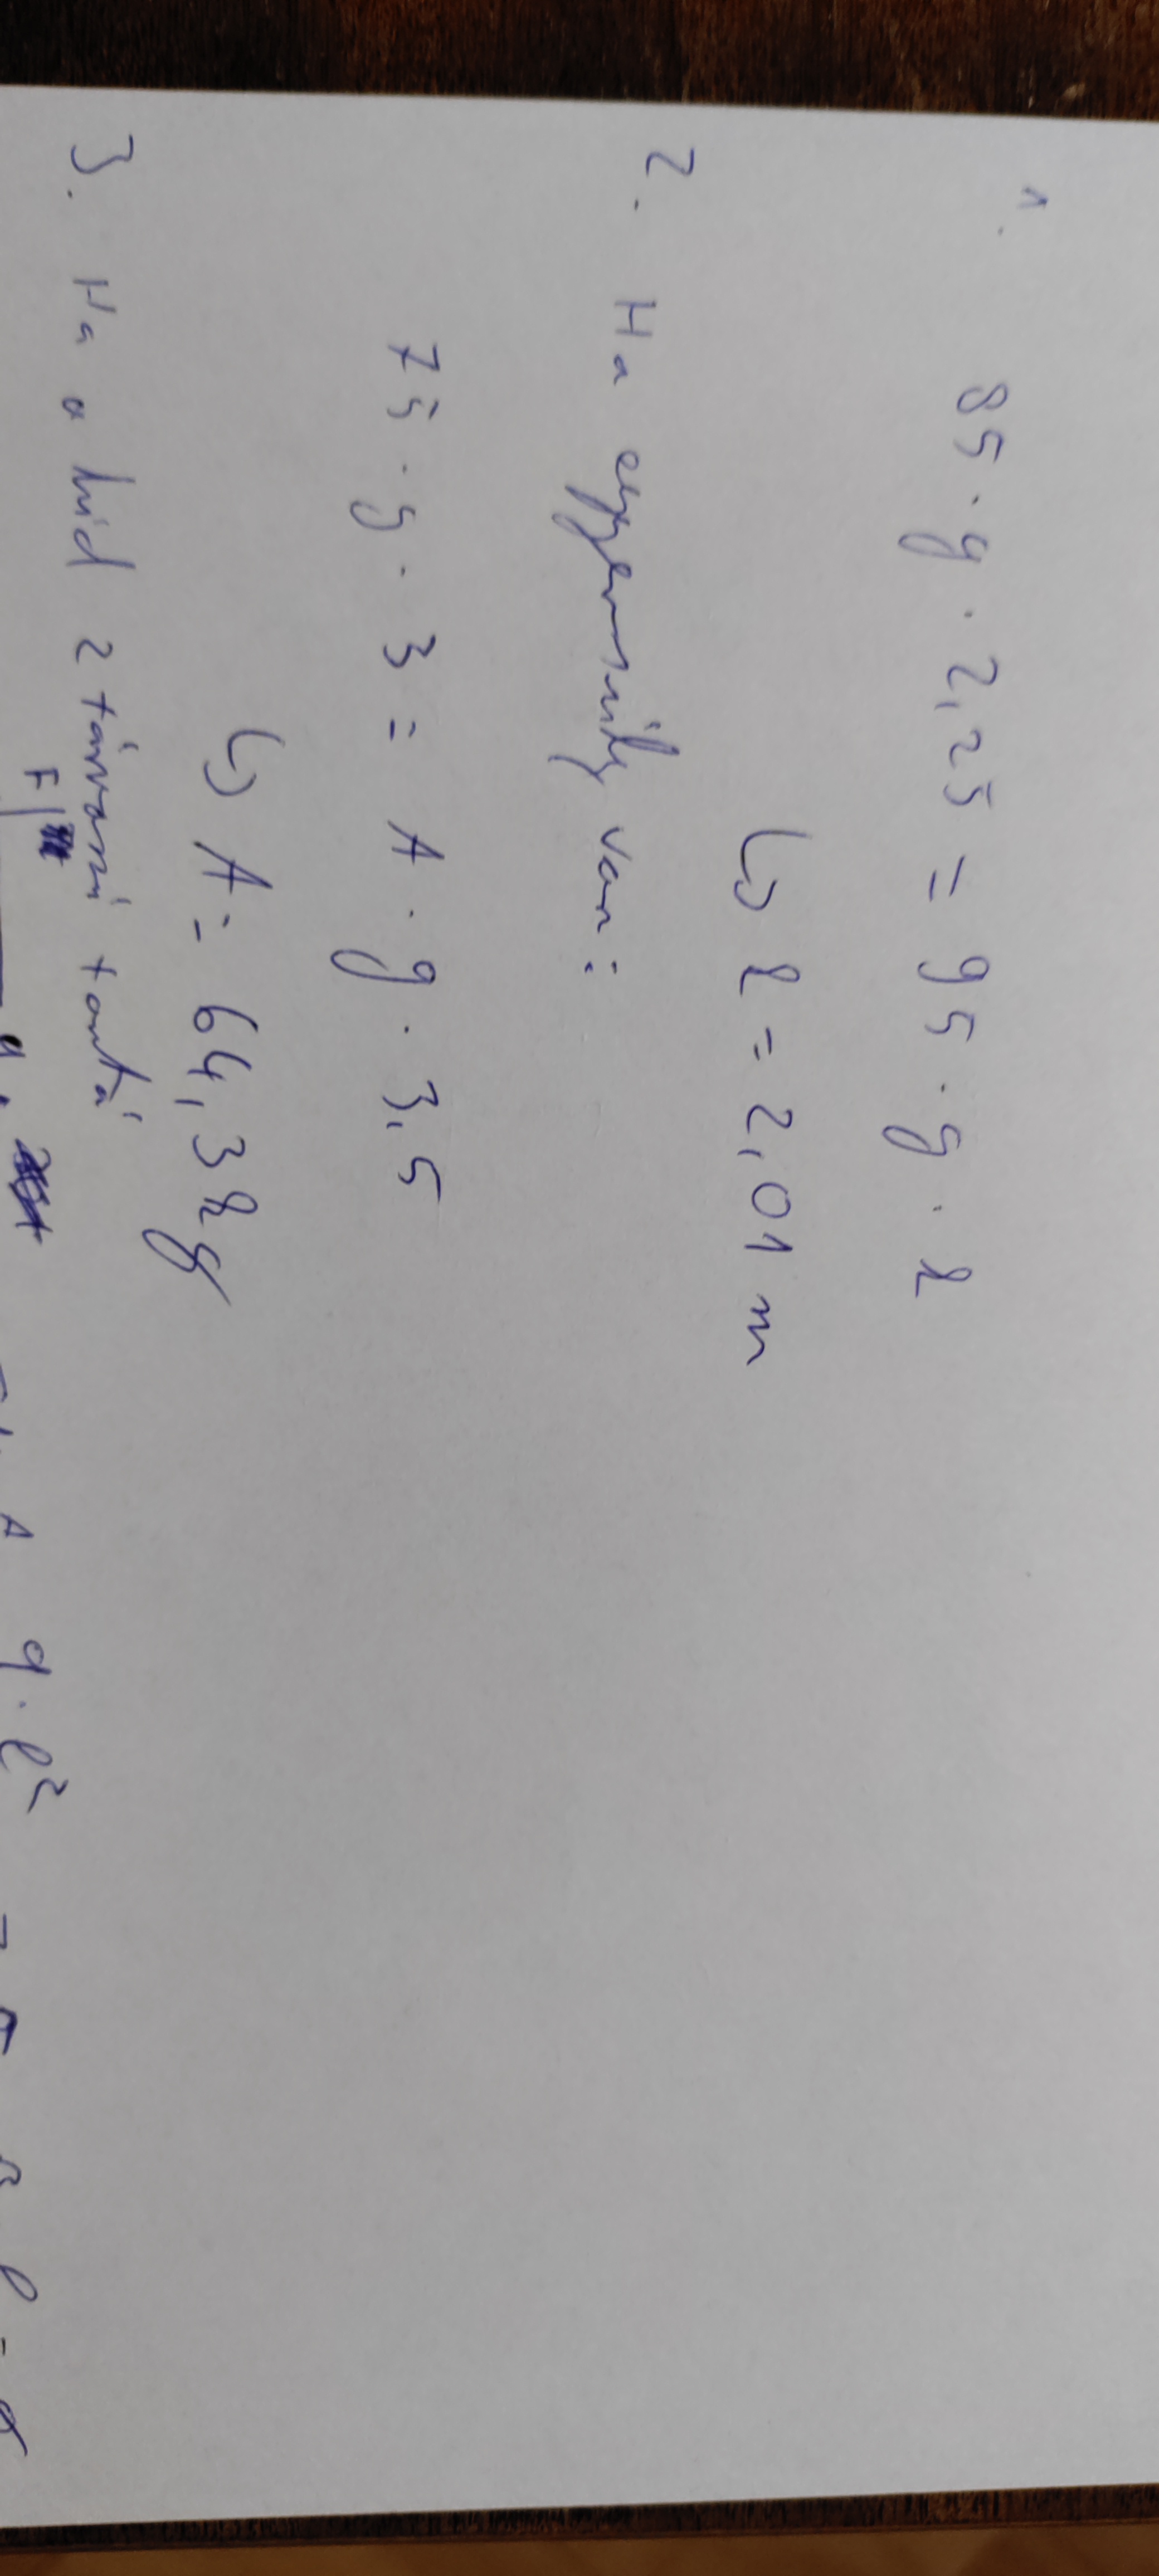 1.
85 · g · 2,25 = 95 · g · l
↳ l = 2,01 m
2. Ha egyensúly van:
75 · g · 3 = A · g · 3,5
↳ A = 64,3 kg
3. Ha a híd 2 támaszú tartó
F